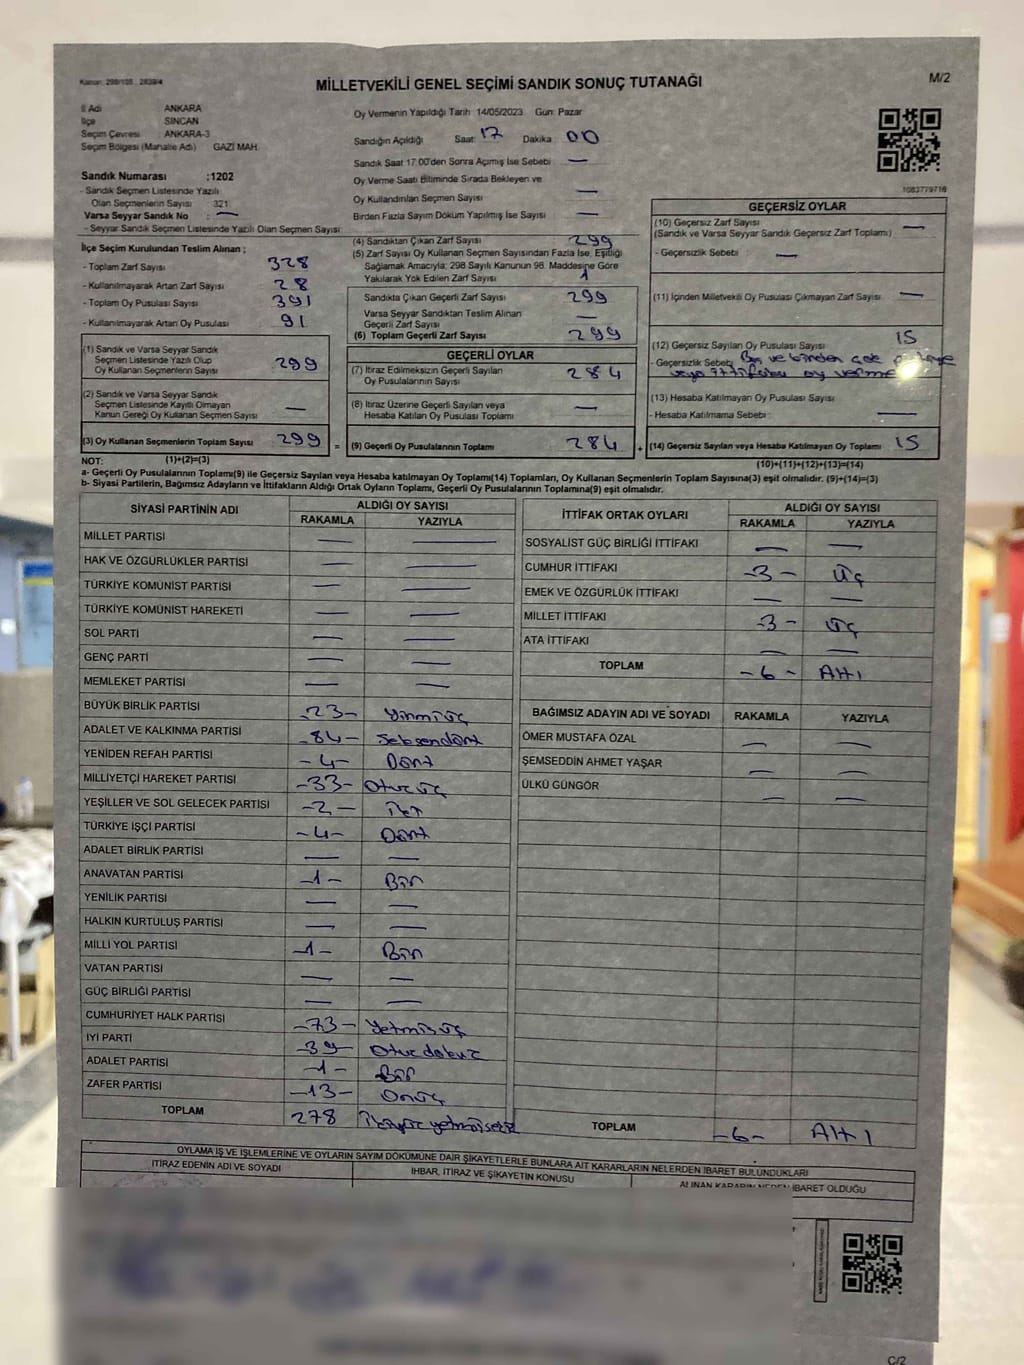 Kanun: 298/105 . 2839/4
MİLLETVEKİLİ GENEL SEÇİMİ SANDIK SONUÇ TUTANAĞI
M/2
İl Adı ANKARA
İlçe SİNCAN
Seçim Çevresi ANKARA-3
Seçim Bölgesi (Mahalle Adı) GAZİ MAH.
Sandık Numarası :1202
- Sandık Seçmen Listesinde Yazılı
Olan Seçmenlerin Sayısı 321
Varsa Seyyar Sandık No : —
- Seyyar Sandık Seçmen Listesinde Yazılı Olan Seçmen Sayısı:
Oy Vermenin Yapıldığı Tarih 14/05/2023 Gün: Pazar
Sandığın Açıldığı Saat: 17 Dakika 00
Sandık Saat 17:00'den Sonra Açımış İse Sebebi —
Oy Verme Saati Bitiminde Sırada Bekleyen ve
Oy Kullandırılan Seçmen Sayısı —
Birden Fazla Sayım Döküm Yapılmış İse Sayısı —
1083779716
İlçe Seçim Kurulundan Teslim Alınan ;
- Toplam Zarf Sayısı 328
- Kullanılmayarak Artan Zarf Sayısı 28
- Toplam Oy Pusulası Sayısı 391
- Kullanılmayarak Artan Oy Pusulası 91
(1) Sandık ve Varsa Seyyar Sandık
Seçmen Listesinde Yazılı Olup
Oy Kullanan Seçmenlerin Sayısı 299
(2) Sandık ve Varsa Seyyar Sandık
Seçmen Listesinde Kayıtlı Olmayan
Kanun Gereği Oy Kullanan Seçmen Sayısı —
(3) Oy Kullanan Seçmenlerin Toplam Sayısı 299 =
(4) Sandıktan Çıkan Zarf Sayısı 299
(5) Zarf Sayısı Oy Kullanan Seçmen Sayısından Fazla İse, Eşitliği
Sağlamak Amacıyla; 298 Sayılı Kanunun 98. Maddesine Göre
Yakılarak Yok Edilen Zarf Sayısı 1
Sandıkta Çıkan Geçerli Zarf Sayısı 299
Varsa Seyyar Sandıktan Teslim Alınan
Geçerli Zarf Sayısı —
(6) Toplam Geçerli Zarf Sayısı 299
GEÇERLİ OYLAR
(7) İtiraz Edilmeksizin Geçerli Sayılan
Oy Pusulalarının Sayısı 284
(8) İtiraz Üzerine Geçerli Sayılan veya
Hesaba Katılan Oy Pusulası Toplamı —
(9) Geçerli Oy Pusulalarının Toplamı 284 +
GEÇERSİZ OYLAR
(10) Geçersiz Zarf Sayısı —
(Sandık ve Varsa Seyyar Sandık Geçersiz Zarf Toplamı)
- Geçersizlik Sebebi : —
(11) İçinden Milletvekili Oy Pusulası Çıkmayan Zarf Sayısı —
(12) Geçersiz Sayılan Oy Pusulası Sayısı 15
- Geçersizlik Sebebi: ve birden
veya ittifaka oy verme
(13) Hesaba Katılmayan Oy Pusulası Sayısı
- Hesaba Katılmama Sebebi : —
(14) Geçersiz Sayılan veya Hesaba Katılmayan Oy Toplamı 15
NOT: (1)+(2)=(3)
(10)+(11)+(12)+(13)=(14)
a- Geçerli Oy Pusulalarının Toplamı(9) ile Geçersiz Sayılan veya Hesaba katılmayan Oy Toplamı(14) Toplamları, Oy Kullanan Seçmenlerin Toplam Sayısına(3) eşit olmalıdır. (9)+(14)=(3)
b- Siyasi Partilerin, Bağımsız Adayların ve İttifakların Aldığı Ortak Oyların Toplamı, Geçerli Oy Pusulalarının Toplamına(9) eşit olmalıdır.
SİYASİ PARTİNİN ADI ALDIĞI OY SAYISI
RAKAMLA YAZIYLA
MİLLET PARTİSİ — —
HAK VE ÖZGÜRLÜKLER PARTİSİ — —
TÜRKİYE KOMÜNİST PARTİSİ — —
TÜRKİYE KOMÜNİST HAREKETİ — —
SOL PARTİ — —
GENÇ PARTİ — —
MEMLEKET PARTİSİ — —
BÜYÜK BİRLİK PARTİSİ -23- Yirmiüç
ADALET VE KALKINMA PARTİSİ -84- Seksendört
YENİDEN REFAH PARTİSİ -4- Dört
MİLLİYETÇİ HAREKET PARTİSİ -33- Otuzüç
YEŞİLLER VE SOL GELECEK PARTİSİ -2- iki
TÜRKİYE İŞÇİ PARTİSİ -4- Dört
ADALET BİRLİK PARTİSİ — —
ANAVATAN PARTİSİ -1- Bir
YENİLİK PARTİSİ — —
HALKIN KURTULUŞ PARTİSİ — —
MİLLİ YOL PARTİSİ -1- Bir
VATAN PARTİSİ — —
GÜÇ BİRLİĞİ PARTİSİ — —
CUMHURİYET HALK PARTİSİ -73- Yetmişüç
İYİ PARTİ -39- Otuzdokuz
ADALET PARTİSİ -1- Bir
ZAFER PARTİSİ -13- Onüç
TOPLAM 278 İkiyüzyetmişsekiz
İTTİFAK ORTAK OYLARI ALDIĞI OY SAYISI
RAKAMLA YAZIYLA
SOSYALİST GÜÇ BİRLİĞİ İTTİFAKI — —
CUMHUR İTTİFAKI -3- Üç
EMEK VE ÖZGÜRLÜK İTTİFAKI — —
MİLLET İTTİFAKI -3- Üç
ATA İTTİFAKI — —
TOPLAM -6- Altı
BAĞIMSIZ ADAYIN ADI VE SOYADI RAKAMLA YAZIYLA
ÖMER MUSTAFA ÖZAL — —
ŞEMSEDDİN AHMET YAŞAR — —
ÜLKÜ GÜNGÖR — —
TOPLAM -6- Altı
OYLAMA İŞ VE İŞLEMLERİNE VE OYLARIN SAYIM DÖKÜMÜNE DAİR ŞİKAYETLERLE BUNLARA AİT KARARLARIN NELERDEN İBARET BULUNDUKLARI
İTİRAZ EDENİN ADI VE SOYADI İHBAR, İTİRAZ VE ŞİKAYETİN KONUSU ALINAN KARARIN NEDEN İBARET OLDUĞU
C/2